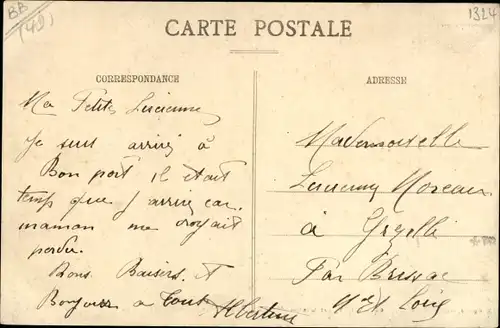 BB
(49)
1324
CARTE POSTALE
CORRESPONDANCE
Ma Petite Lucienne
Je suis arrivé à
Bon port il était
temps que j arrive car
maman me croyait
perdu.
Bons Baisers et
Bonjour a Tous Albertine
ADRESSE
Mademoiselle
Lucienne Moreau
à Grézillé
Par Brissac
Mne et Loire